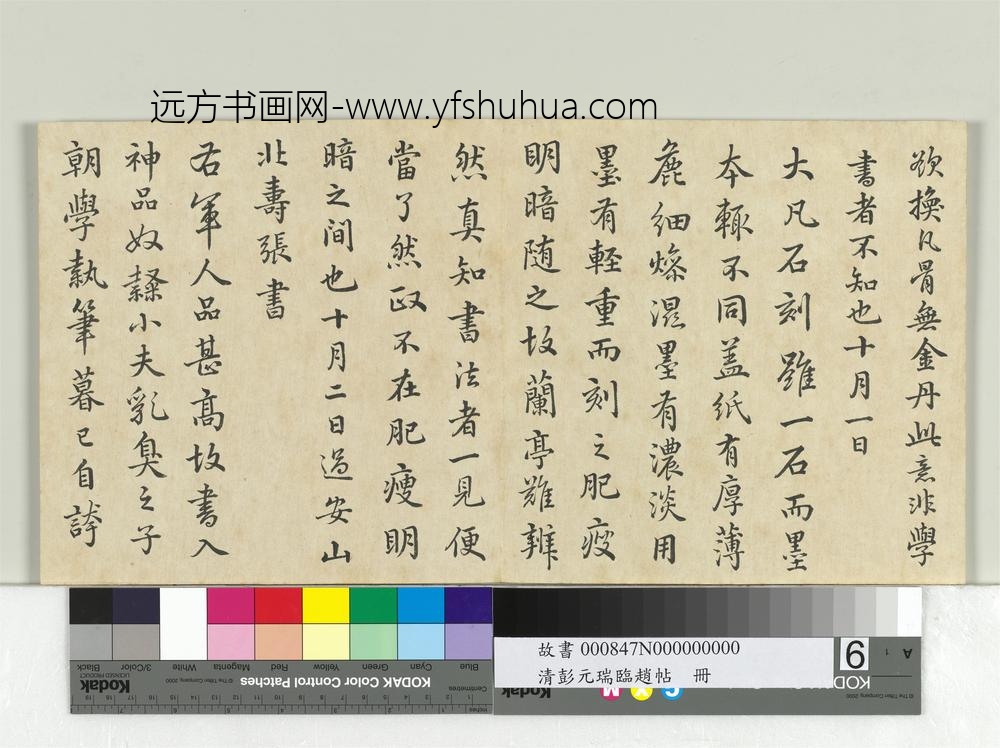 远方书画网-www.yfshuhua.com
欲換凡骨無金丹此意非學
書者不知也十月一日
大凡石刻雖一石而墨
本輒不同盖紙有厚薄
麁細燥濕墨有濃淡用
墨有輕重而刻之肥瘦
明暗随之故蘭亭難辨
然真知書法者一見便
當了然政不在肥瘦明
暗之间也十月二日過安山
北壽張書
右軍人品甚高故書入
神品奴隸小夫乳臭之子
朝學執筆暮已自誇
故書 000847N000000000
清彭元瑞臨趙帖 冊
6
A 1
Blue Cyan Green Yellow Red Magenta White 3/Color Black
KODAK Color Control Patches
Kodak
LICENSED PRODUCT
© The Tiffen Company, 2000
Centimetres
Inches
KOD
C Y M